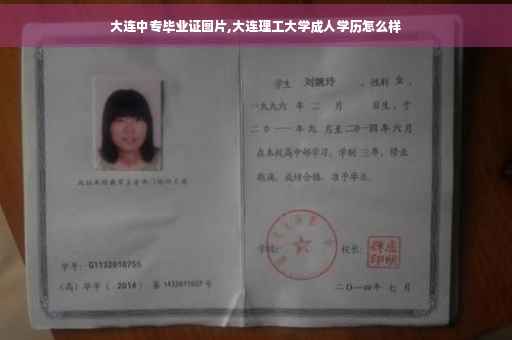 大连中专毕业证图片,大连理工大学成人学历怎么样
学生 刘婉玲 ,性别 女 ,
一九九六 年 二 月 日生,于
二〇一一年九 月至二〇一四年 六 月
在本校高中部学习,学制 三年,修业
期满,成绩合格,准予毕业。
学校:
校长:
学号: G1132010755
(高)毕字( 2014 )第 1432011007 号
二〇一四年 七 月